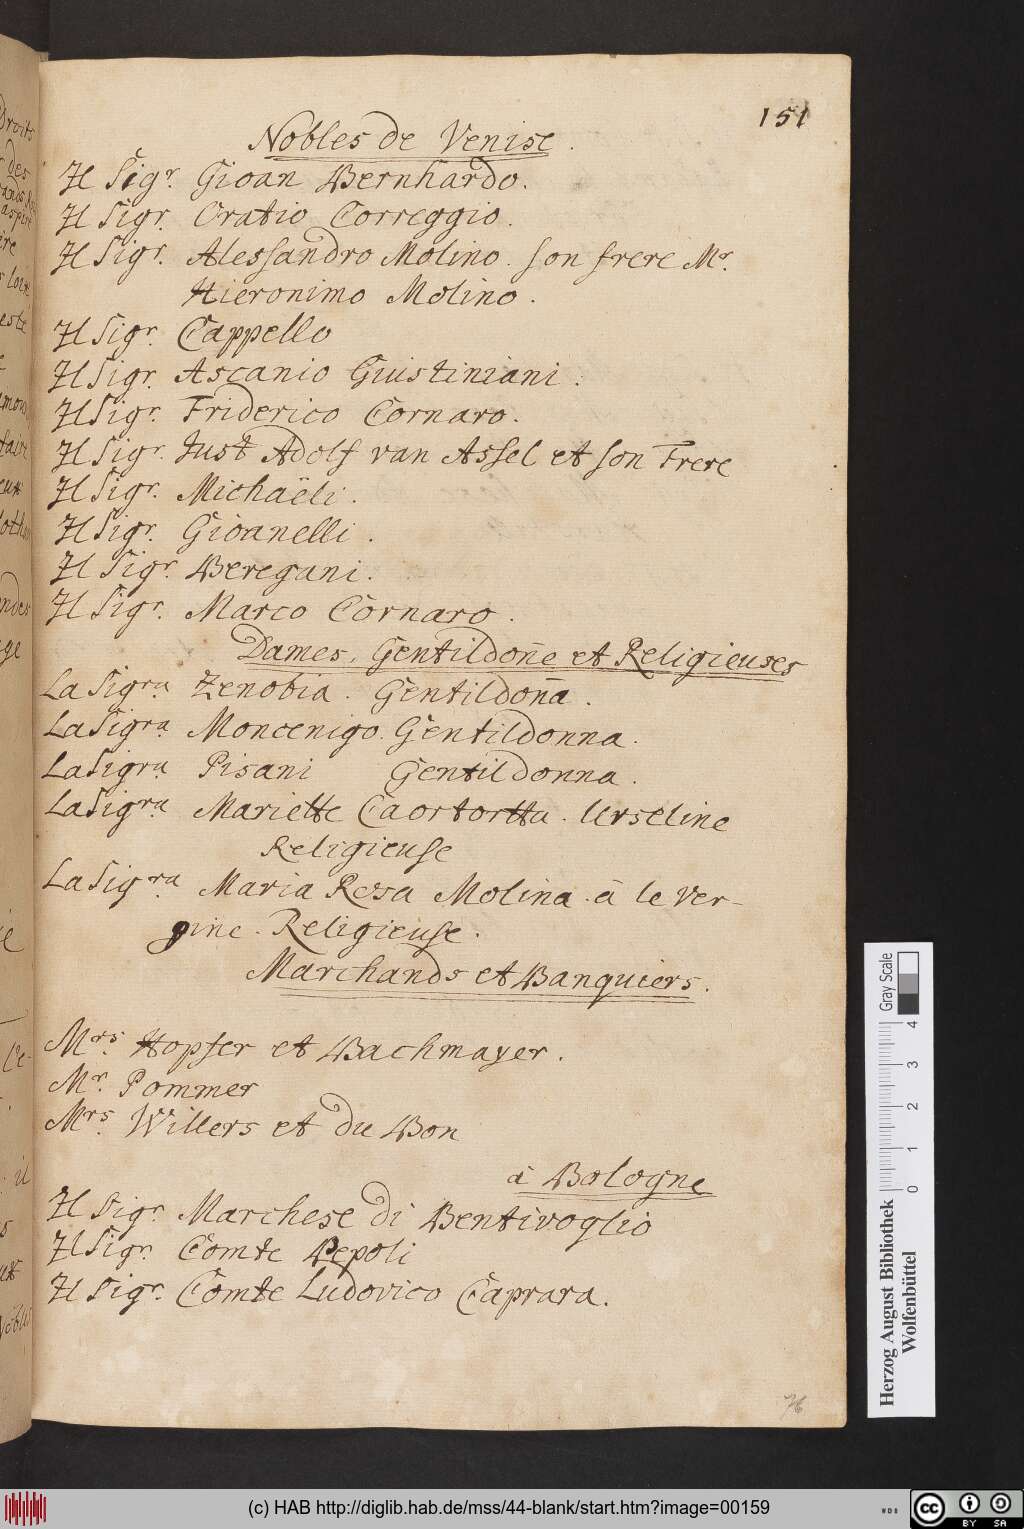 151
Nobles de Venise.
Il Sigr. Gioan Bernhardo.
Il Sigr. Oratio Correggio.
Il Sigr. Alessandro Molino. son frere Mr.
Hieronimo Molino.
Il Sigr. Cappello
Il Sigr. Ascanio Giustiniani.
Il Sigr. Friderico Cornaro.
Il Sigr. Just Adolf van Assel et son Frere
Il Sigr. Michaëli.
Il Sigr. Gioanelli.
Il Sigr. Beregani.
Il Sigr. Marco Cornaro.
Dames, Gentildoñe et Religieuses
La Sigra Zenobia. Gentildoña.
La Sigra Moncenigo. Gentildonna.
La Sigra Pisani Gentildonna.
La Sigra Mariette Caortortta. Urseline
Religieuse
La Sigra. Maria Rosa Molina. à le Ver-
gine. Religieuse.
Marchands et Banquiers.
Mrs. Hopfer et Bachmayer.
Mr. Pommer
Mrs. Willers et du Bon
à Bologne
Il Sigr. Marchese di Bentivoglio
Il Sigr. Comte Pepoli
Il Sigr. Comte Ludovico Caprara.
76
Gray Scale
0 1 2 3 4
Herzog August Bibliothek
Wolfenbüttel
(c) HAB http://diglib.hab.de/mss/44-blank/start.htm?image=00159
WDB
cc BY SA